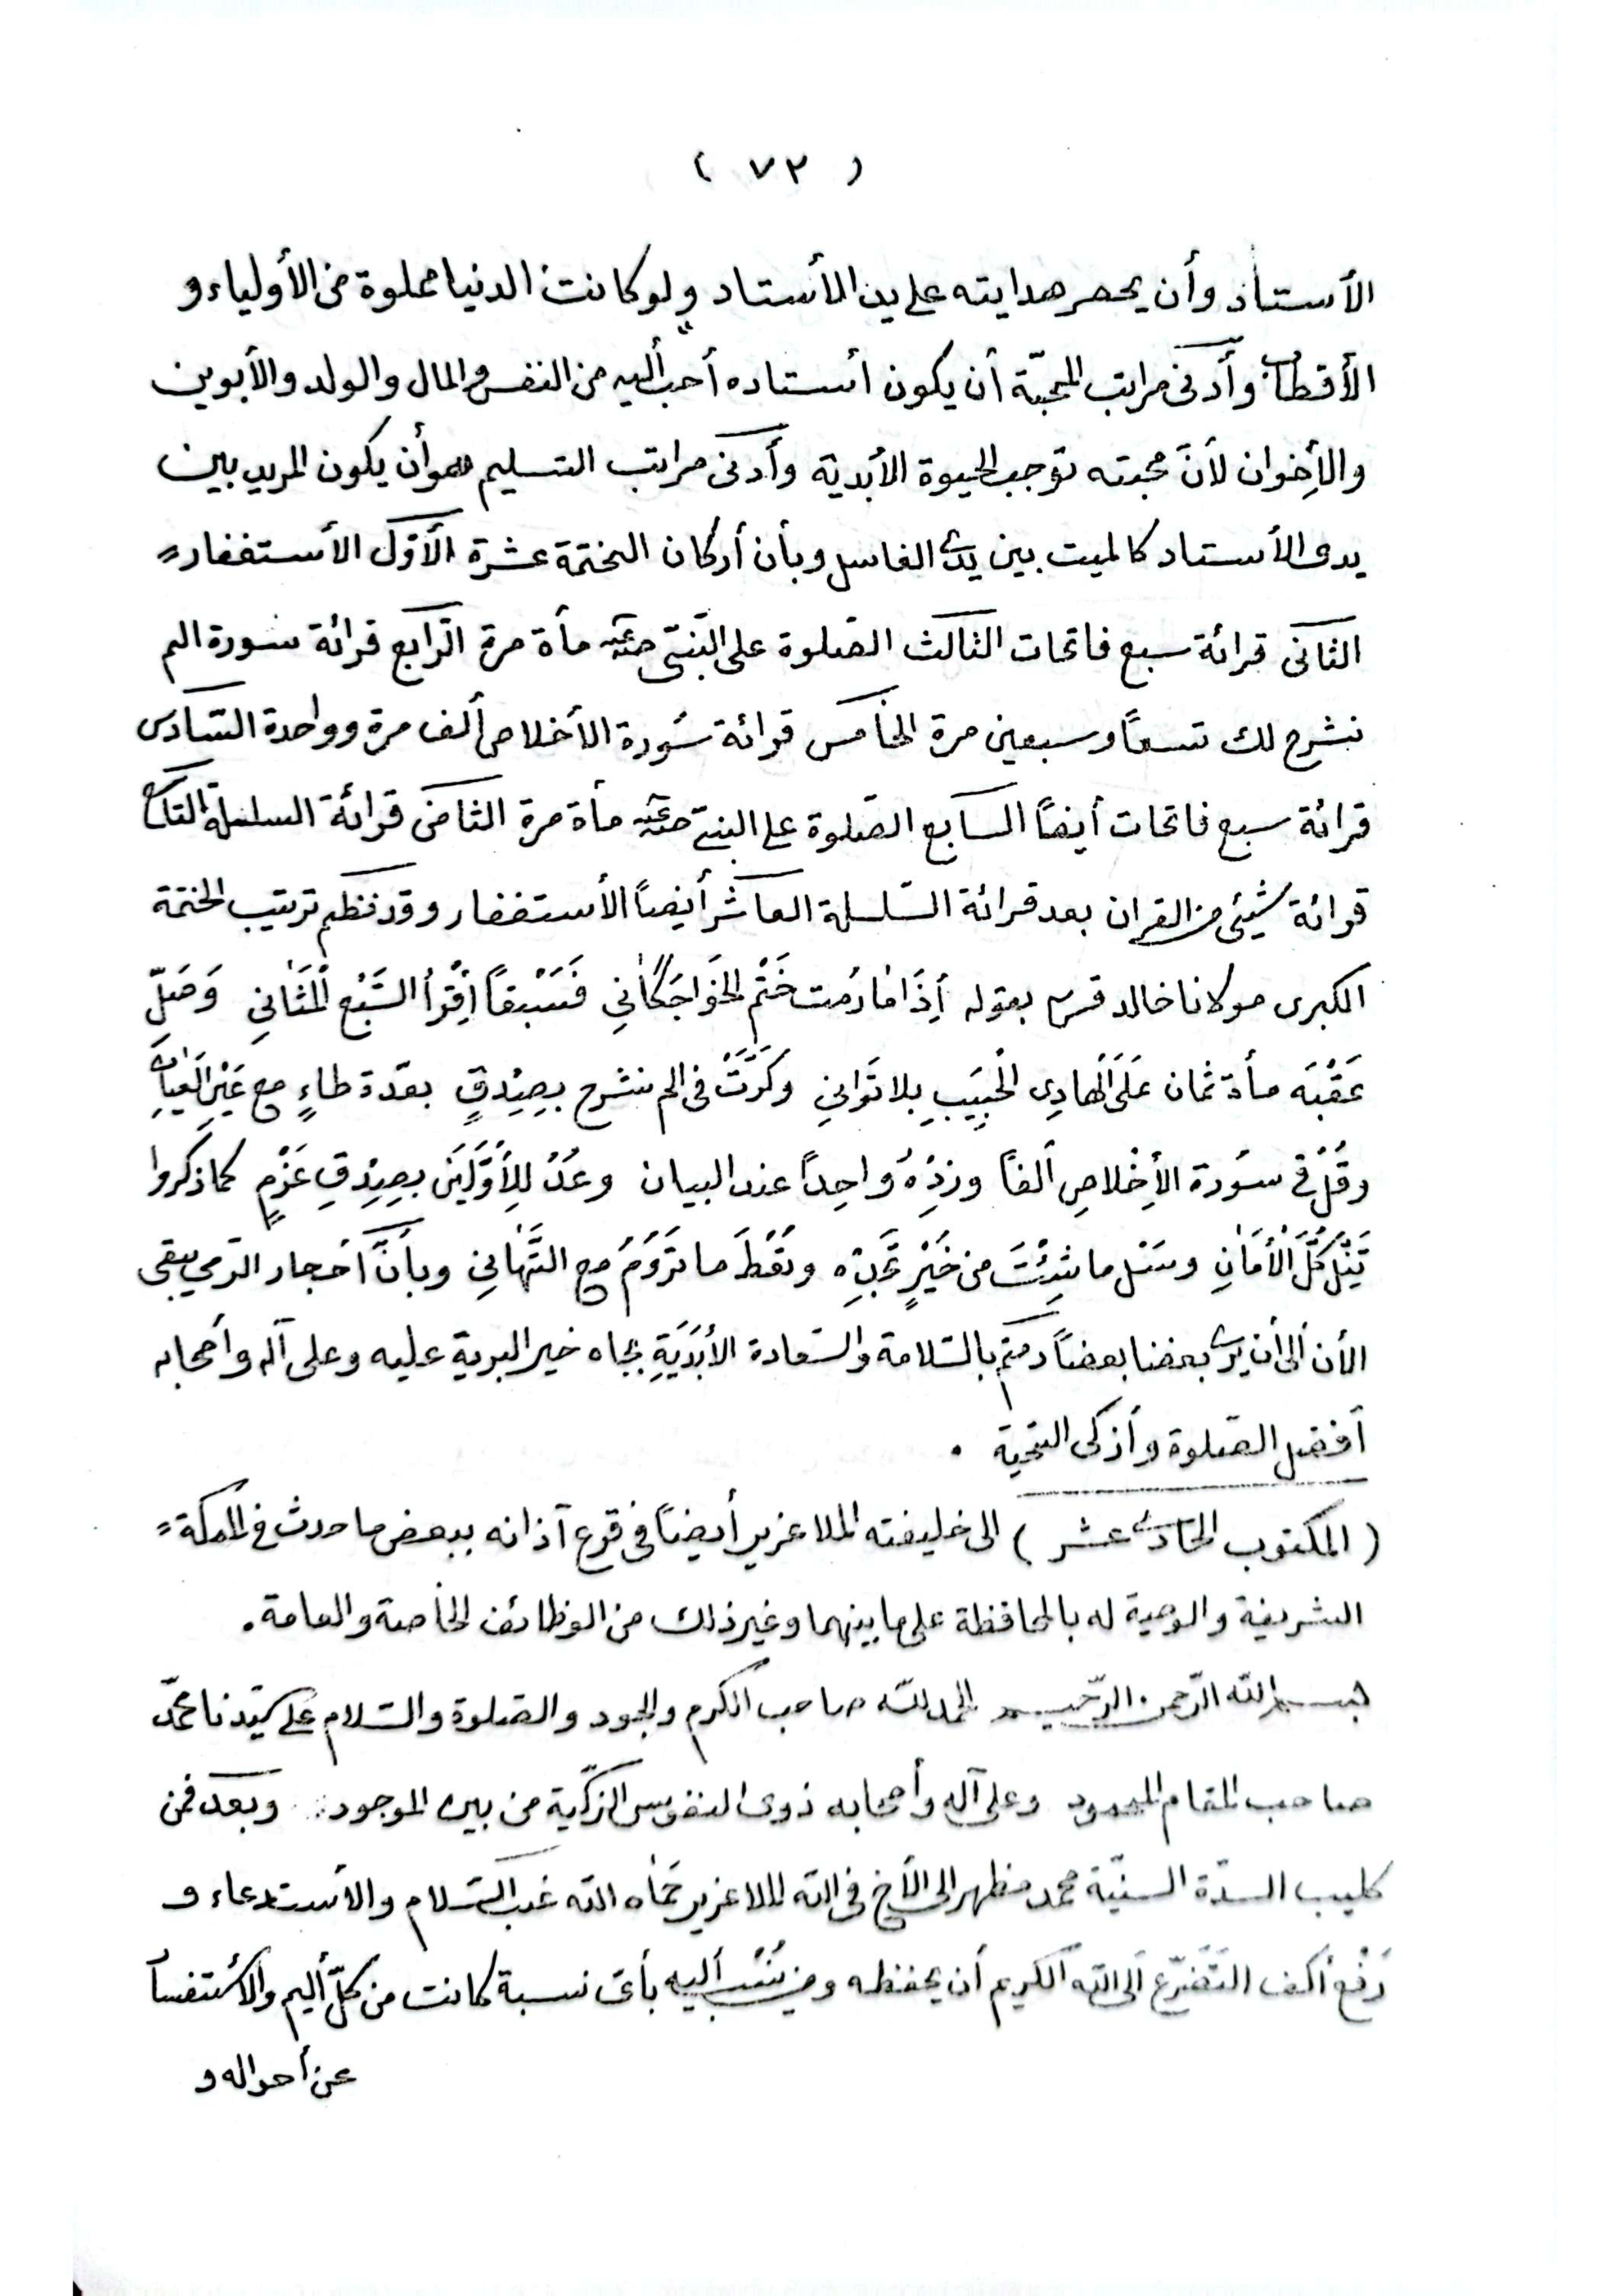 ( ٧٢ )
الأستاذ وأن يحصر هدايته على يد الأستاد ولو كانت الدنيا مملوة من الأولياء و
الأقطاب وأدنى مراتب المحبّة أن يكون أستاده أحب أليه من النفس والمال والولد والأبوين
والأِخوان لأنَّ محبته توجب الحيوة الأبدية وأدنى مراتب التسليم هو أن يكون المريد بين
يدى الأستاد كالميت بين يدى الغاسل وبأن أركان الختمة عشرة الأوّل الأستغفار
الثانى قرائة سبع فاتحات الثالث الصّلوة على النّبىّ مأة مرة الرّابع قرائة سورة الم
نشرح لك تسعاً وسبعين مرة الخامس قرائة سُورة الأخلاص ألف مرة وواحدة السّادس
قرائة سبع فاتحات أيضاً السابع الصّلوة على النبىّ مأة مرة الثامن قرائة السلسلة التاسع
قرائة شيئى من القران بعد قرائة السّلسلة العاشر أيضاً الأستغفار وقد نظم ترتيب الختمة
الكبرى مولانا خالد قدس بقوله أِذَا مَا رُمت خَتْم الخَواجَكَانِي فَسَبْعاً أِقْرأ السَّبْع الْمَثَانِي وَصَلِّ
عَقْبَه مأة ثمان عَلَى الْهادِى الْحَبِيَبِ بِلا تَوَانِي وكَرِّرَنْ فى الم نشرح بِصِدْقٍ بعدّة طاءٍ مع عَيْنِ الْعَيانِ
وقُلْ فى سُورة الأِخْلاصِ ألفاً وزِدْهُ وُاحِداً عند البيان وعُدْ لِلأَوَّلَيْنَ بِصِدْقِ عَزْمٍ كما ذكروا
تَنِلْ كُلَّ الْأَمَانِ وسَل ما شِئْتَ من خَيْرٍ تَجِدْهِ وتُعْطَ ما تَرُومُ مع التَّهَانِي وبأنَّ أحجار الرّمى يبقى
الأن ألى أن يرى بعضنا بعضاً دمتم بالسّلامة والسّعادة الأَبَدَيّةِ بجاه خير البرية عليه وعلى آله وأصحابه
أفضل الصّلوة وأزكى التحية .
( المكتوب الحادى عشر ) الى خليفته الملا عزير أيضاً فى قرع آذانه ببعض ما حدث فى المكة
الشريفة والوصية له بالمحافظة على ما بينهما وغير ذلك من الوظائف الخاصة والعامة.
بسم الله الرّحمن الرّحيم الحمد للّه صاحب الكرم والجود والصّلوة والسّلام على سيّدنا محمّد
صاحب المقام المحمود وعلى آله وأصحابه ذوى النفوس الزّكية من بين الموجود . وبعد فمن
كليب السدّة السنيّة محمد مظهر الى الأخ فى الله الملا عزير حَمَاه الله غب السّلام والأستدعاء و
رَفْع أكف التّضرّع الى الله الكريم أن يحفظه ومن يُنْسَب أليه بأى نسبة كانت من كلّ أليم والأستفسار
عن أحواله و